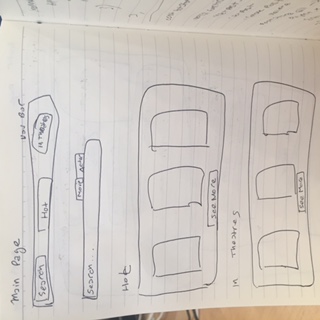 Main Page
Nav Bar
Search
Hot
in Theatres
Movie Actor
Search...
Hot
See More
in Theatres
See More